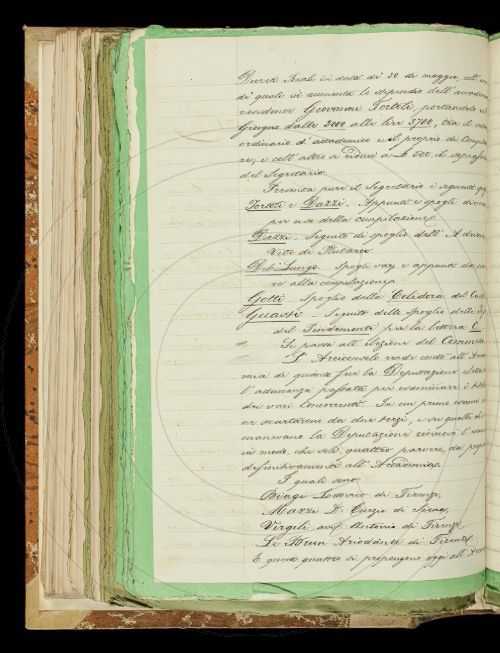 Decreti Reale in data di 20 di maggio, coll'uno
di quali si aumenta lo stipendio dell'accademico
residente Giovanni Tortoli, portandolo al
Giorgno dalle 3000 alle lire 3700, tra il
ordinario d'accademico e il proprio di Compila
re, e coll'altro si riduce a 500 il soprassol
del Segretario.
Presenta pure il Segretario i seguenti
Tortoli e Dazzi. Appunti e spogli diversi
per uso della compilazione.
Dazzi. Seguito di spoglio dell'Adriani
Vite di Plutarco.
Del Lungo. Spogli varj e appunti
alla compilazione
Gotti. Spoglio della Celidora del
Guasti. Seguito dello spoglio delle
del Tondamenti per la lettera C.
Si passa all'elezione del
L'Arciconsolo rende conto all'Acca
mia di quanto fece la Deputazione
l'adunanza passata per esaminare i
dei varii Concorrenti. In un primo esame
ne scartarono da due terzi, e su quelli che
mancavano la Deputazione rinnovò l'esame
in modo, che soli quattro parvero da proporsi
definitivamente all'Accademia.
I quali sono:
Biagi Lodovico di Firenze,
Mazzi D. Curzio di Siena,
Virgili avv. Antonio di Firenze
Le Brun Ariodante di Firenze
E questi quattro si propongono oggi all'